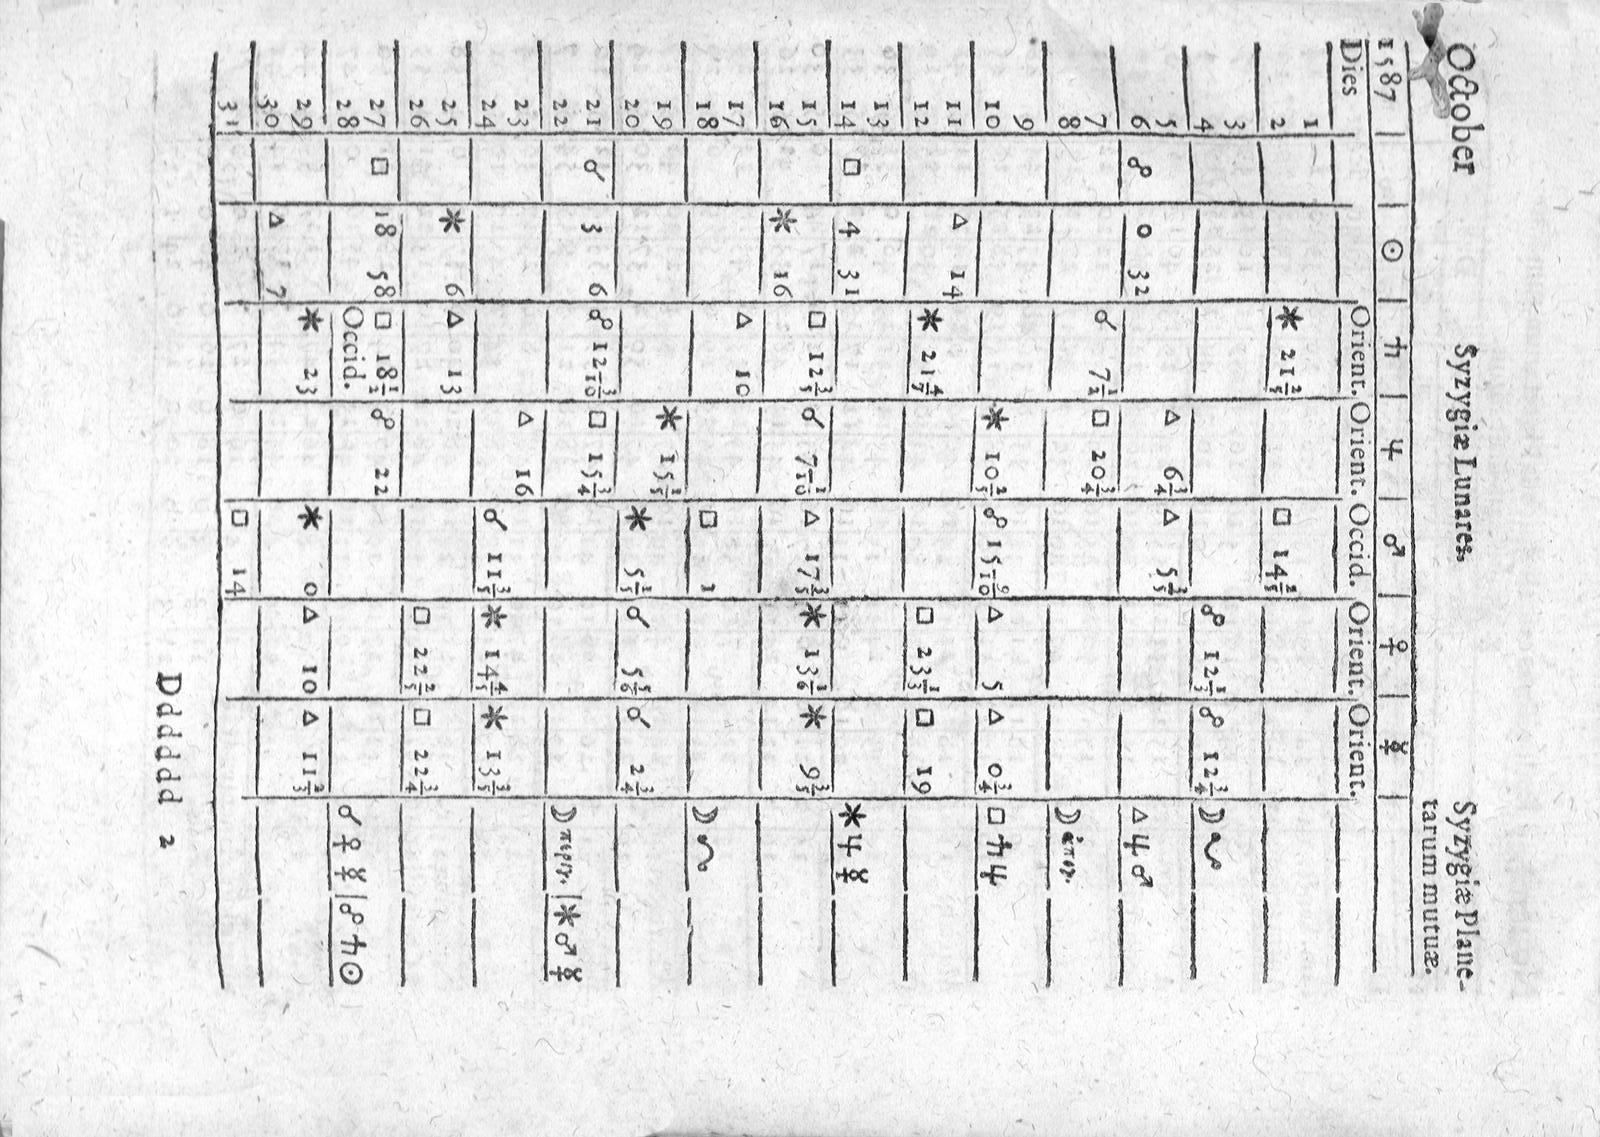 October Syzygiæ Lunares. Syzygiæ Plane-
tarum mutuæ.
1587 ☉ ♄ ♃ ♂ ♀ ☿
Dies Orient. Orient. Occid. Orient. Orient.
1
2 ✶ 21 2/5 □ 14 2/5
3
4 ☍ 12 1/3 ☍ 12 3/4 ☽
5 △ 6 3/4 △ 5 3/5
6 ☍ 0 32 △ ♃ ♂
7 ☌ 7 1/2 □ 20 3/4
8 ☽ ἀπογ.
9
10 ✶ 10 2/5 ☍ 15 9/10 △ 5 △ 0 3/4 □ ♄ ♃
11 △ 14
12 ✶ 21 4/5 □ 23 1/3 □ 19
13
14 □ 4 31 ✶ ♃ ☿
15 □ 12 3/5 ☌ 7 1/10 △ 17 3/5 ✶ 13 1/6 ✶ 9 3/5
16 ✶ 16
17 △ 10
18 □ 1 ☽
19 ✶ 15 1/5
20 ✶ 5 1/5 ☌ 5 5/6 ☌ 2 3/4
21 ☌ 3 6 ☍ 12 3/10 □ 15 3/4
22 ☽ περιγ. | ✶ ♂ ☿
23 △ 16
24 ☌ 11 3/5 ✶ 14 4/5 ✶ 13 3/5
25 ✶ 6 △ 13
26 □ 22 2/5 □ 22 3/4
27 □ 18 58 □ 18 1/2 ☍ 22
28 Occid. ☌ ♀ ☿ | ☍ ♄ ☉
29 ✶ 23 ✶ 0 △ 10 △ 11 2/3
30 △ 7
31 □ 14
Dddddd 2